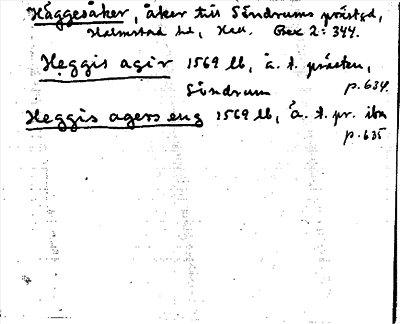 Häggesåker, åker till Söndrums prästgd,
Halmstad hd, Hall. Bex 2: 344.
Heggis agir 1569 lb, å. t. prästen,
Söndrum p. 634
Heggis agers eng 1569 lb, å. t. pr. ibm
p. 635